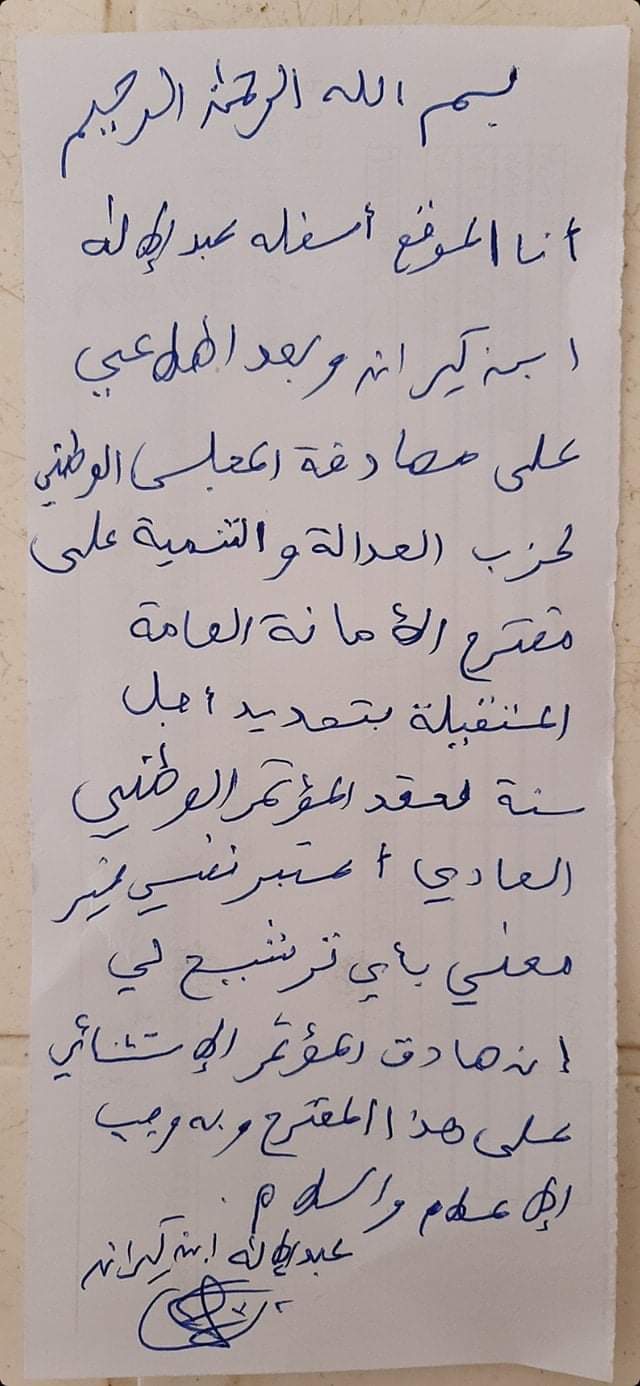 بسم الله الرحمن الرحيم
أنا الموقع أسفله عبد الإله
ابن كيران وبعد اطلاعي
على مصادقة المجلس الوطني
لحزب العدالة والتنمية على
مقترح الأمانة العامة
المستقيلة بتحديد أجل
سنة لعقد المؤتمر الوطني
العادي أعتبر نفسي غير
معني بأي ترشيح لي
إن صادق المؤتمر الإستثنائي
على هذا المقترح وبه وجب
الإعلام والسلام.
عبد الإله ابن كيران